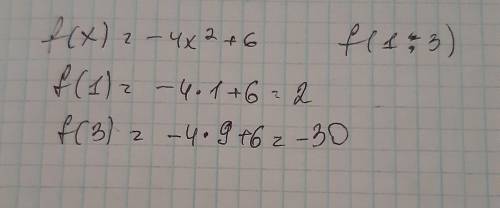 f(x) = -4x² + 6 f(1 ; 3)
f(1) = -4 · 1 + 6 = 2
f(3) = -4 · 9 + 6 = -30